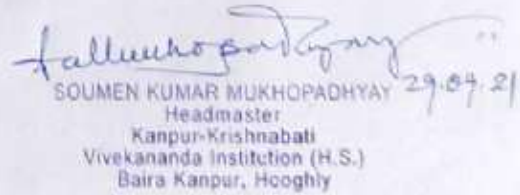 SOUMEN KUMAR MUKHOPADHYAY 29.04.21
Headmaster
Kanpur-Krishnabati
Vivekananda Institution (H.S.)
Baira Kanpur, Hooghly